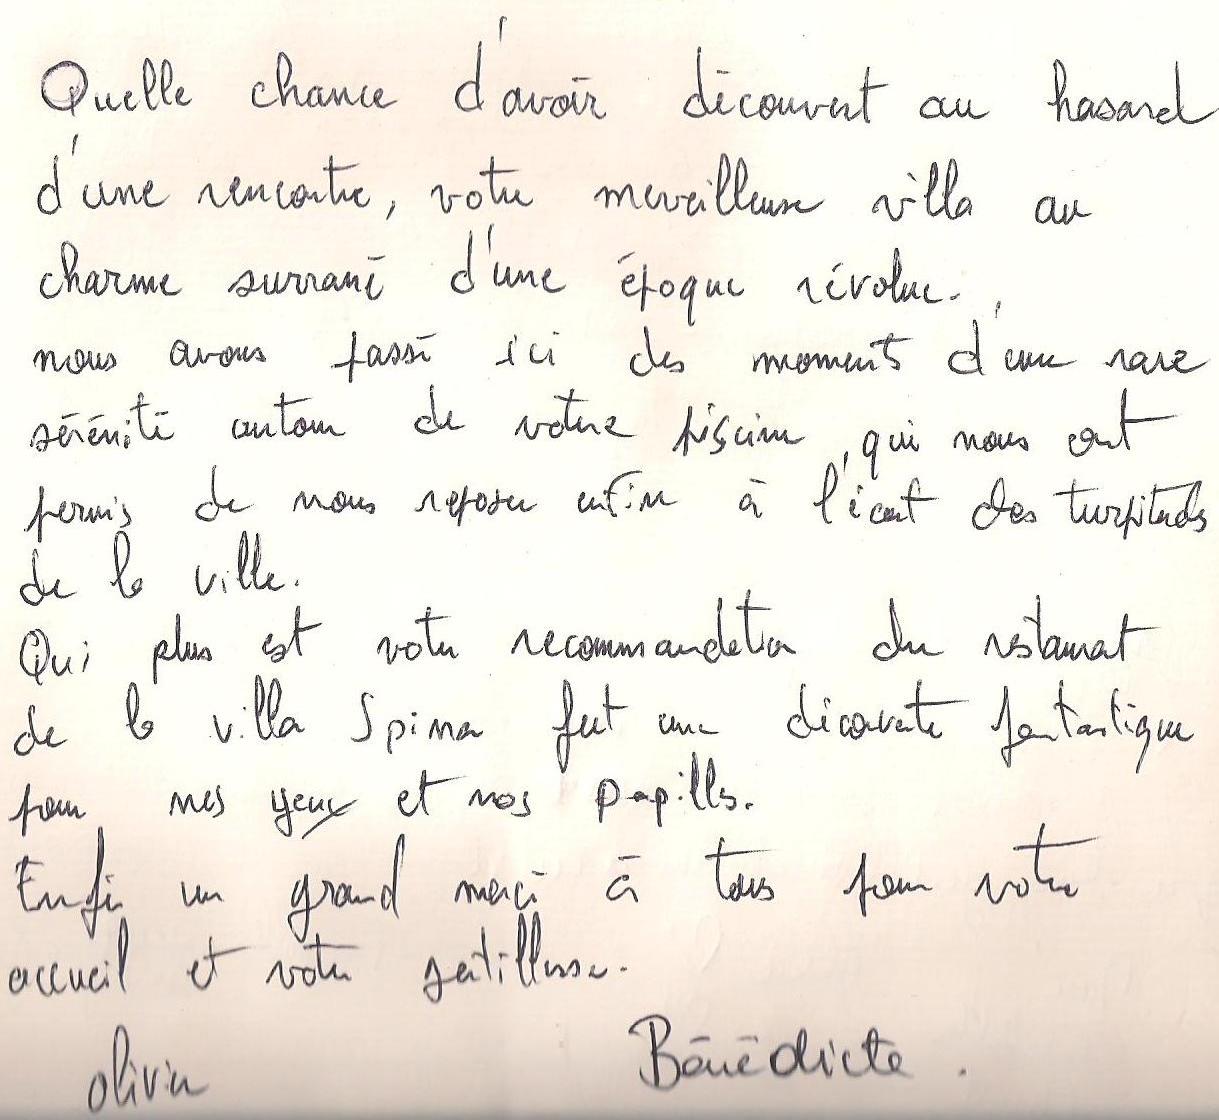 Quelle chance d'avoir découvert au hasard
d'une rencontre, votre merveilleuse villa au
charme surrané d'une époque révolue.
nous avons passé ici des moments d'une rare
sérénité autour de votre piscine, qui nous ont
permis de nous reposer enfin à l'écart des turpitudes
de la ville.
Qui plus est votre recommandation du restaurant
de la villa Spina fut une découverte fantastique
pour nos yeux et nos papilles.
Enfin un grand merci à tous pour votre
accueil et votre gentillesse.
Olivier Bénédicte.